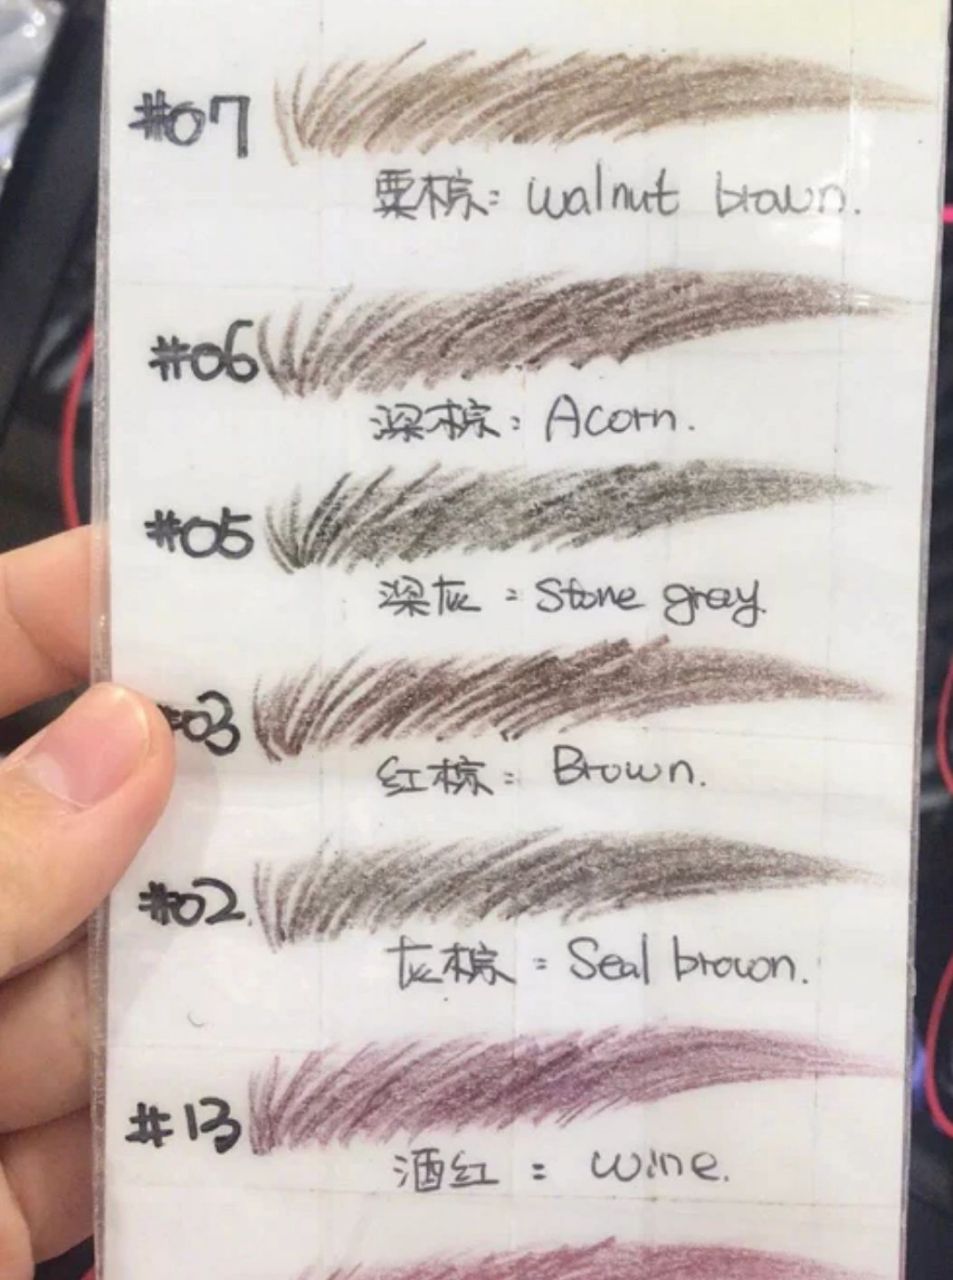 #07
栗棕: Walnut brown.
#06
深棕: Acorn.
#05
深灰: Stone gray.
#03
红棕: Brown.
#02
灰棕: Seal brown.
#13
酒红: wine.